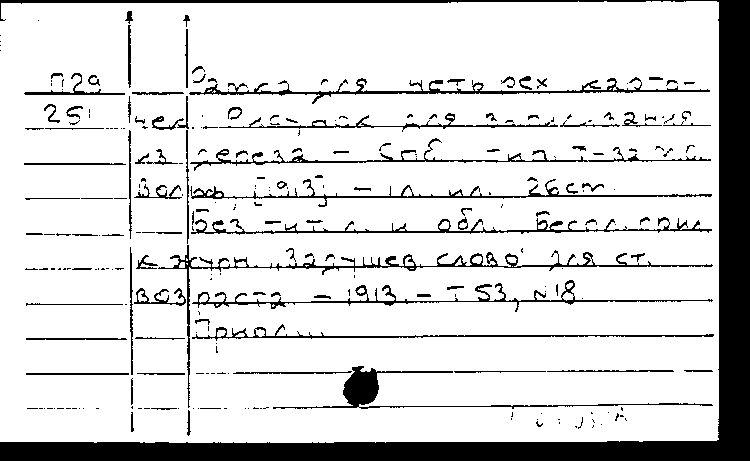 П29 Рамка для четырех карто-
251 чек: Рисунок для выпиливания
из дерева. – Спб. тип. Т-ва М.О.
Вольф, [1913]. – 1 л. ил. 26 см.
Без тит. л. и обл. Беспл. прил.
к журн. „Задушев. слово" для ст.
возраста. – 1913. – Т 53, №18